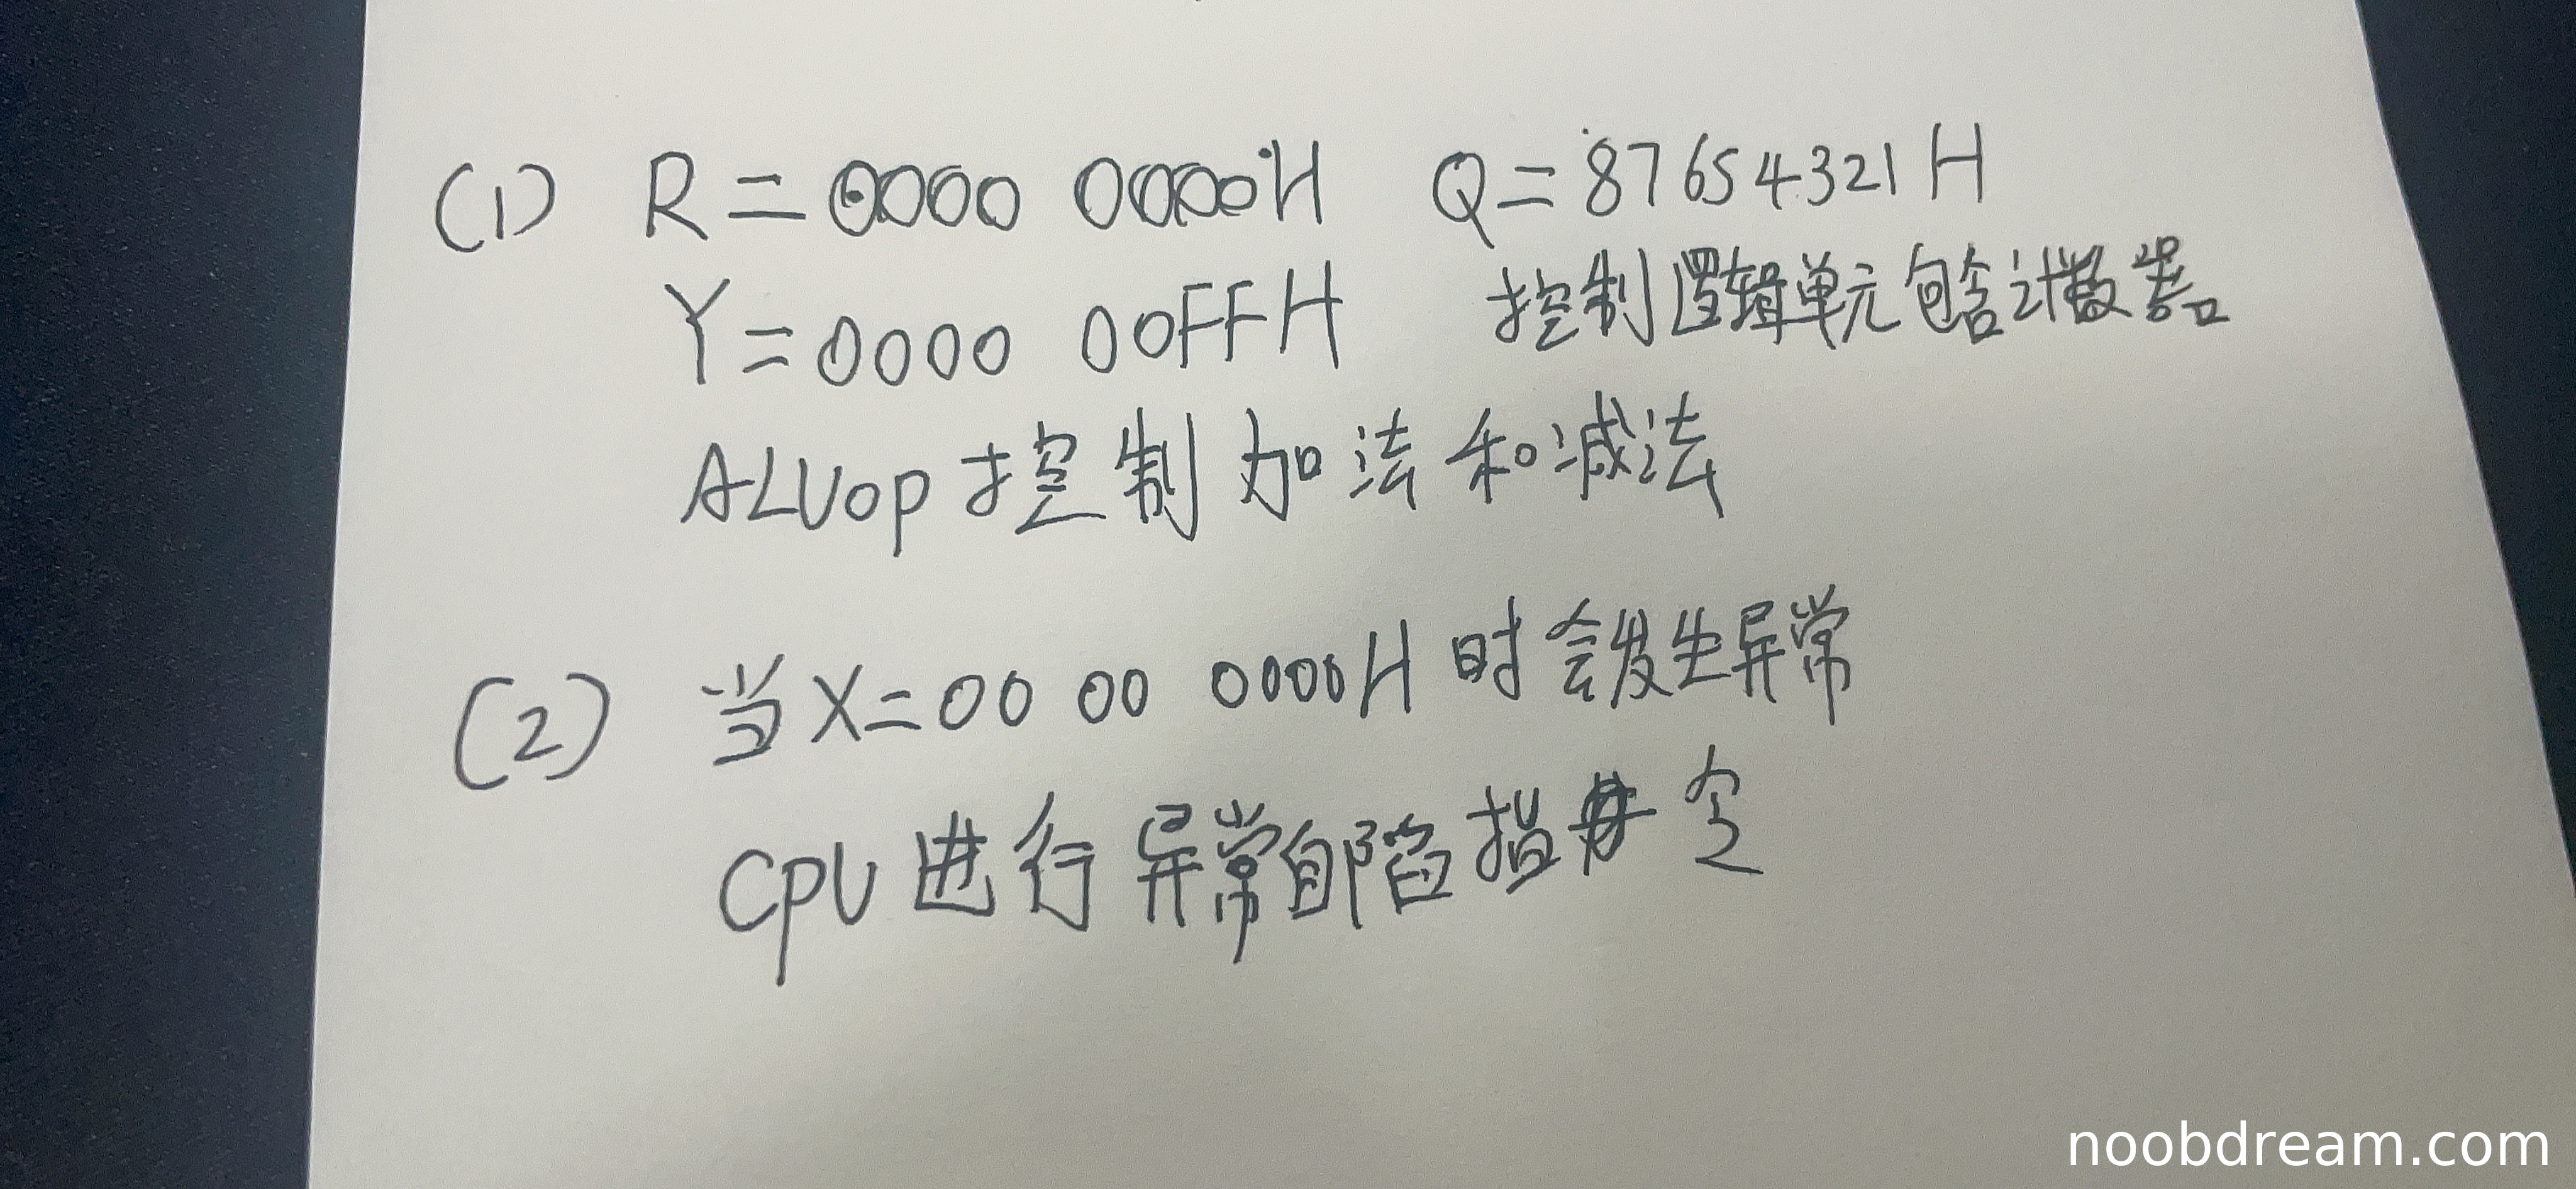 (1) R = 0000 0000H Q = 87654321H
Y = 0000 00FFH 控制逻辑单元包含计数器
ALUop 控制加法和减法
(2) 当X=00 00 0000H 时会发生异常
CPU进行异常自陷指令
noobdream.com